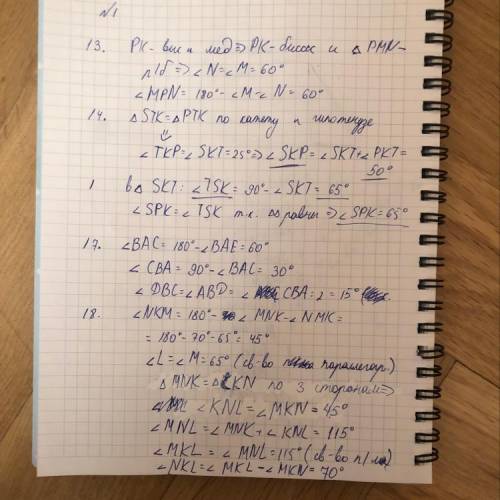 №1
13. PK - выс и мед ⇒ PK - биссек и △PMN -
р/б ⇒ ∠N = ∠M = 60°
∠MPN = 180° - ∠M - ∠N = 60°
14. △STK = △PTK по катету и гипотенузе
⇓
∠TKP = ∠SKT = 25° ⇒ ∠SKP = ∠SKT + ∠PKT =
50°
1 в △ SKT: ∠TSK = 90° - ∠SKT = 65°
∠SPK = ∠TSK т.к. равны ⇒ ∠SPK = 65°
17. ∠BAC = 180° - ∠BAE = 60°
∠CBA = 90° - ∠BAC = 30°
∠DBC = ∠ABD = ∠CBA : 2 = 15°
18. ∠NKM = 180° - ∠MNK - ∠NMK =
= 180° - 70° - 65° = 45°
∠L = ∠M = 65° (св-во параллегор.)
△MNK = △LKN по 3 сторонам ⇒
∠KNL = ∠MKN = 45°
∠MNL = ∠MNK + ∠KNL = 115°
∠MKL = ∠MNL = 115° (св-во п/ма)
∠NKL = ∠MKL - ∠MKN = 70°